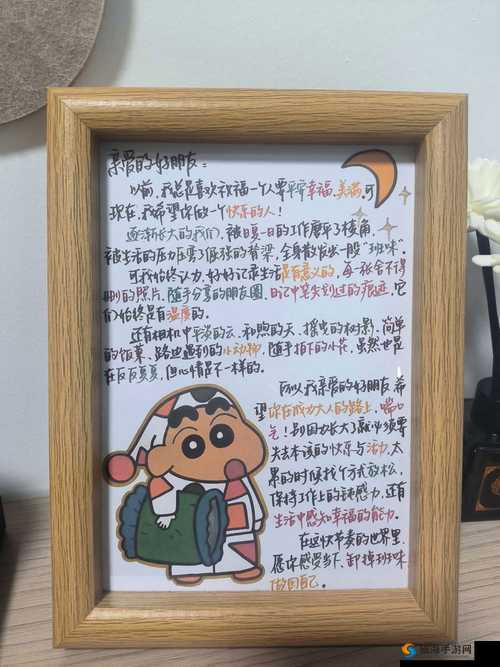 亲爱的好朋友：
以前，我总是喜欢祝福一个人要平平幸福、美满，可
现在，我希望你做一个快乐的人！
逐渐长大的我们，被日复一日的工作磨平了棱角，
被生活的压力压弯了倔强的脊梁，全身散发出一股"班味"。
可我始终认为，好好记录生活是有意义的，每一张舍不得
删的照片，随手分享的朋友圈，日记中笔尖划过的痕迹，它
们始终是有温度的。
还有相机中平淡的云、和煦的天、摇曳的树影、简单
的饭菜、路边遇到的小动物，随手拍下的小花，虽然也是
在反反复复，但心情是不一样的。
所以，我亲爱的好朋友，希
望你在成为大人的路上，喘口
气！别因为长大了就必须要
失去本该的快乐与活力，太
累的时候找个方式放松，
保持工作上的钝感力，还有
生活中感知幸福的能力。
在这快节奏的世界里，
愿你感受当下、卸掉班味，
做回自己。
手游网